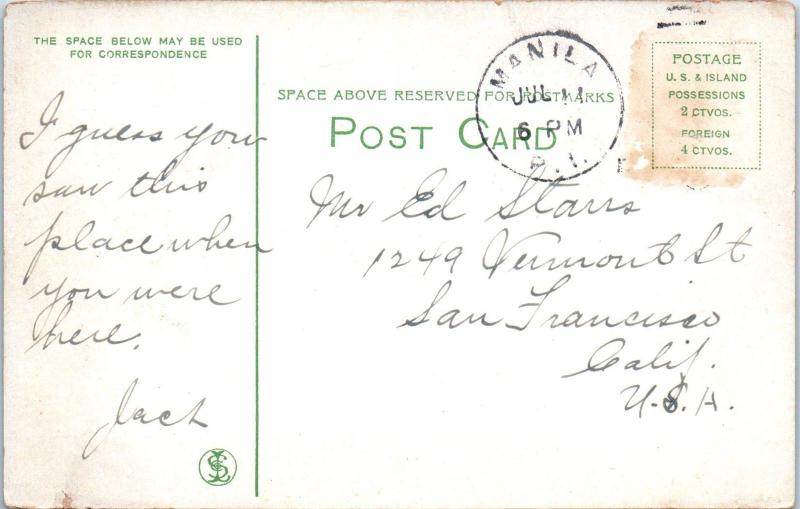 THE SPACE BELOW MAY BE USED
FOR CORRESPONDENCE
I guess you
saw this
place when
you were
here.
Jack
SPACE ABOVE RESERVED FOR POSTMARKS
POST CARD
MANILA
JUL 11
6 PM
P.I.
POSTAGE
U. S. & ISLAND
POSSESSIONS
2 CTVOS.
FOREIGN
4 CTVOS.
Mr Ed Starrs
1249 Vermont St
San Francisco
Calif.
U.S.A.